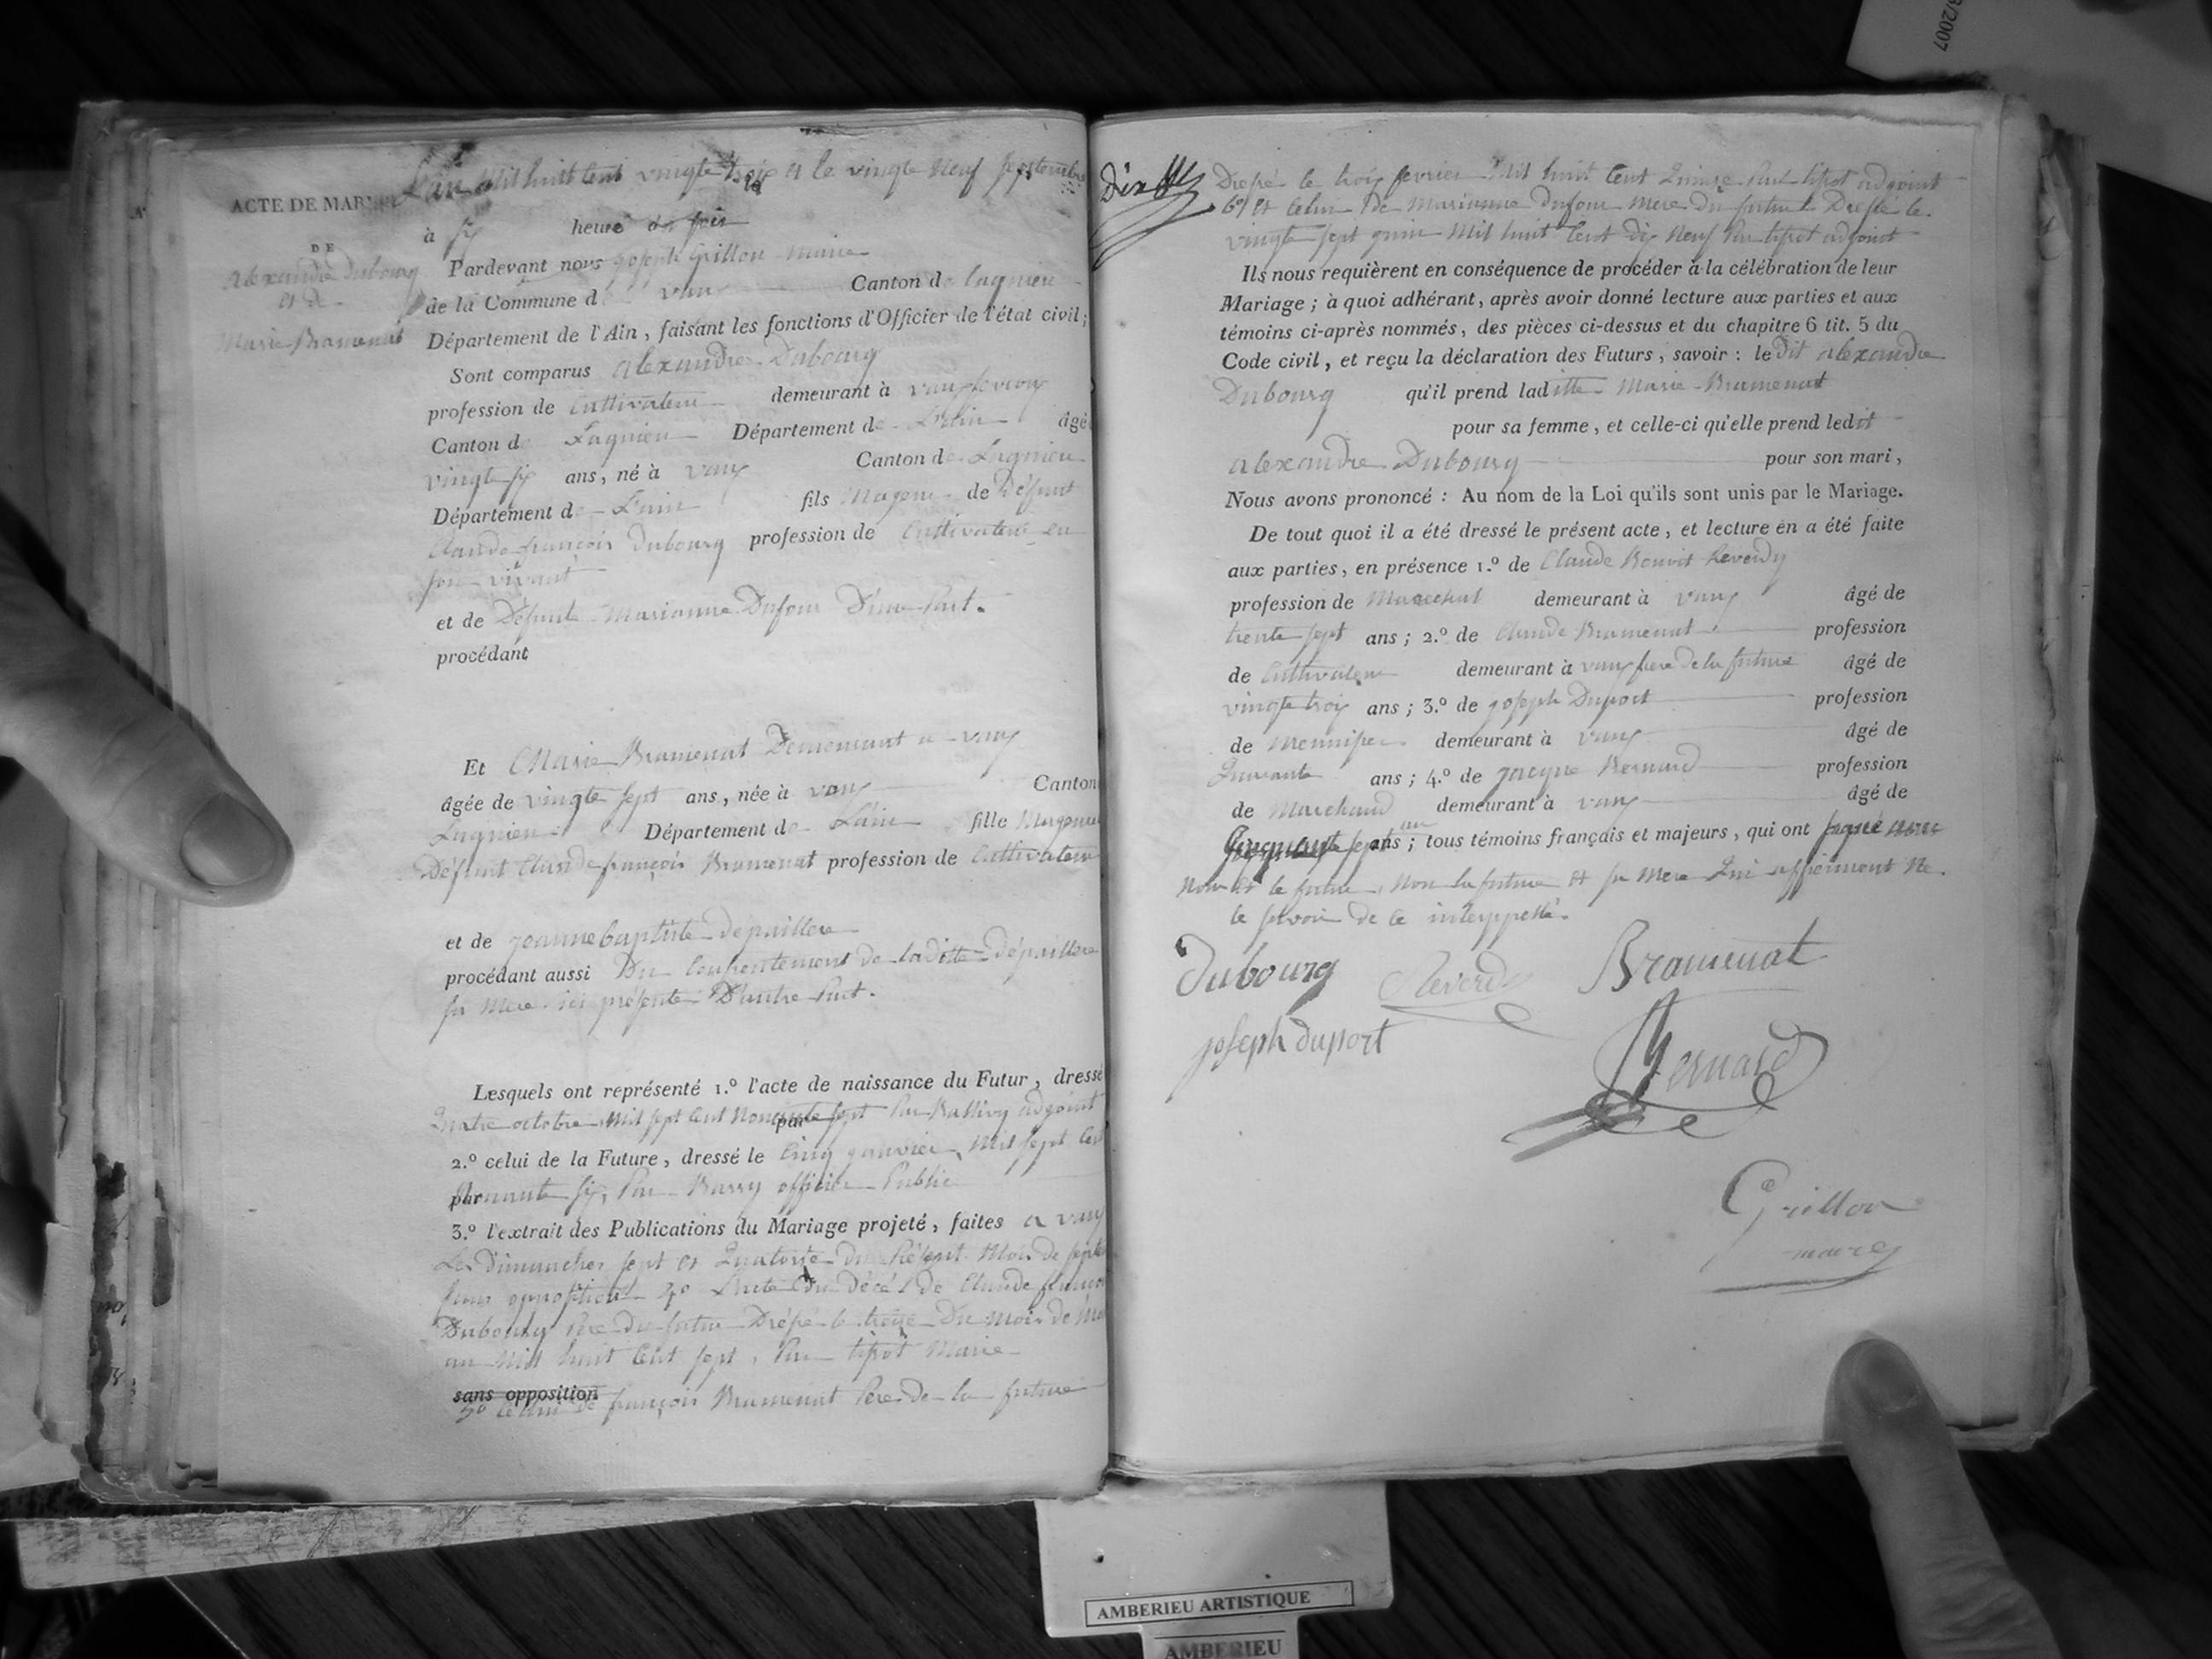 L'an Mil huit Cent vingte trois et le vingte Neuf septembre
ACTE DE MAR
à six heure du soir
DE
Alexandre Dubourg
et de
Marie Bramenat
Pardevant nous joseph Grillon maire
de la Commune d vaux Canton de Lagnieu
Département de l'Ain, faisant les fonctions d'Officier de l'état civil;
Sont comparus alexandre Dubourg
profession de Cultivateur demeurant à vaux
Canton de Lagnieu Département de L'ain âgé
vingte six ans, né à vaux Canton de Lagnieu
Département de L'ain fils Mageur de Défunt
Claude françois Dubourg profession de Cultivateur en
son vivant
et de Défunte Marianne Dufour D'une Part.
procédant
Et Marie Bramenat Demeurant a vaux
âgée de vingte sept ans, née à vaux Canton
Lagnieu Département de L'ain fille Mageure
Défunt Claude françois Bramenat profession de Cultivateur
et de jeanne baptiste dépaillere
procédant aussi Du Consentement de laditte dépaillere
sa Mere ici présente D'autre Part.
Lesquels ont représenté 1.º l'acte de naissance du Futur, dressé
Quatre octobre Mil sept Cent Nonante sept par Par adjoint
2.º celui de la Future, dressé le Cinq janvier Mil sept Cent
par Nonante six, Par Barry officier Public
3.º l'extrait des Publications du Mariage projeté, faites a vaux
Les Dimanches sept et Quatorze du Présent Mois de septe
sans opposition 4º L'acte Du décés de Claude françois
Dubourg Pere du futur Dressé le treize Du mois de
an Mil huit Cent sept, Par tissot Maire
sans opposition
5º Celui de françois Bramenat Pere de la future
Dressé le trois fevrier Mil huit Cent Quinze Par tissot adjoint
6º et Celui de Marianne Dufour Mere du futur Dressé le
vingte sept juin Mil huit Cent dix Neuf Par tissot adjoint
Ils nous requièrent en conséquence de procéder à la célébration de leur
Mariage; à quoi adhérant, après avoir donné lecture aux parties et aux
témoins ci-après nommés, des pièces ci-dessus et du chapitre 6 tit. 5 du
Code civil, et reçu la déclaration des Futurs, savoir: le dit alexandre
Dubourg qu'il prend laditte Marie Bramenat
pour sa femme, et celle-ci qu'elle prend ledit
alexandre Dubourg pour son mari,
Nous avons prononcé: Au nom de la Loi qu'ils sont unis par le Mariage.
De tout quoi il a été dressé le présent acte, et lecture en a été faite
aux parties, en présence 1.º de Claude Benoit Reverdy
profession de Marechal demeurant à vaux âgé de
trente sept ans; 2.º de Claude Bramenat profession
de Cultivateur demeurant à vaux frere de la future âgé de
vingte trois ans; 3.º de joseph Duport profession
de Mennisier demeurant à vaux âgé de
Quarante ans; 4.º de jacque Bernard profession
de Marchand demeurant à vaux âgé de
Cinquante sept ans; tous témoins français et majeurs, qui ont signé avec
Nous et le futur, Non la future et sa Mere Qui affirment Ne
le savoir de ce interppellé.
Dubourg Reverdy Bramenat
joseph duport
Bernard
Grillon
maire
AMBERIEU ARTISTIQUE
AMBERIEU
/2007